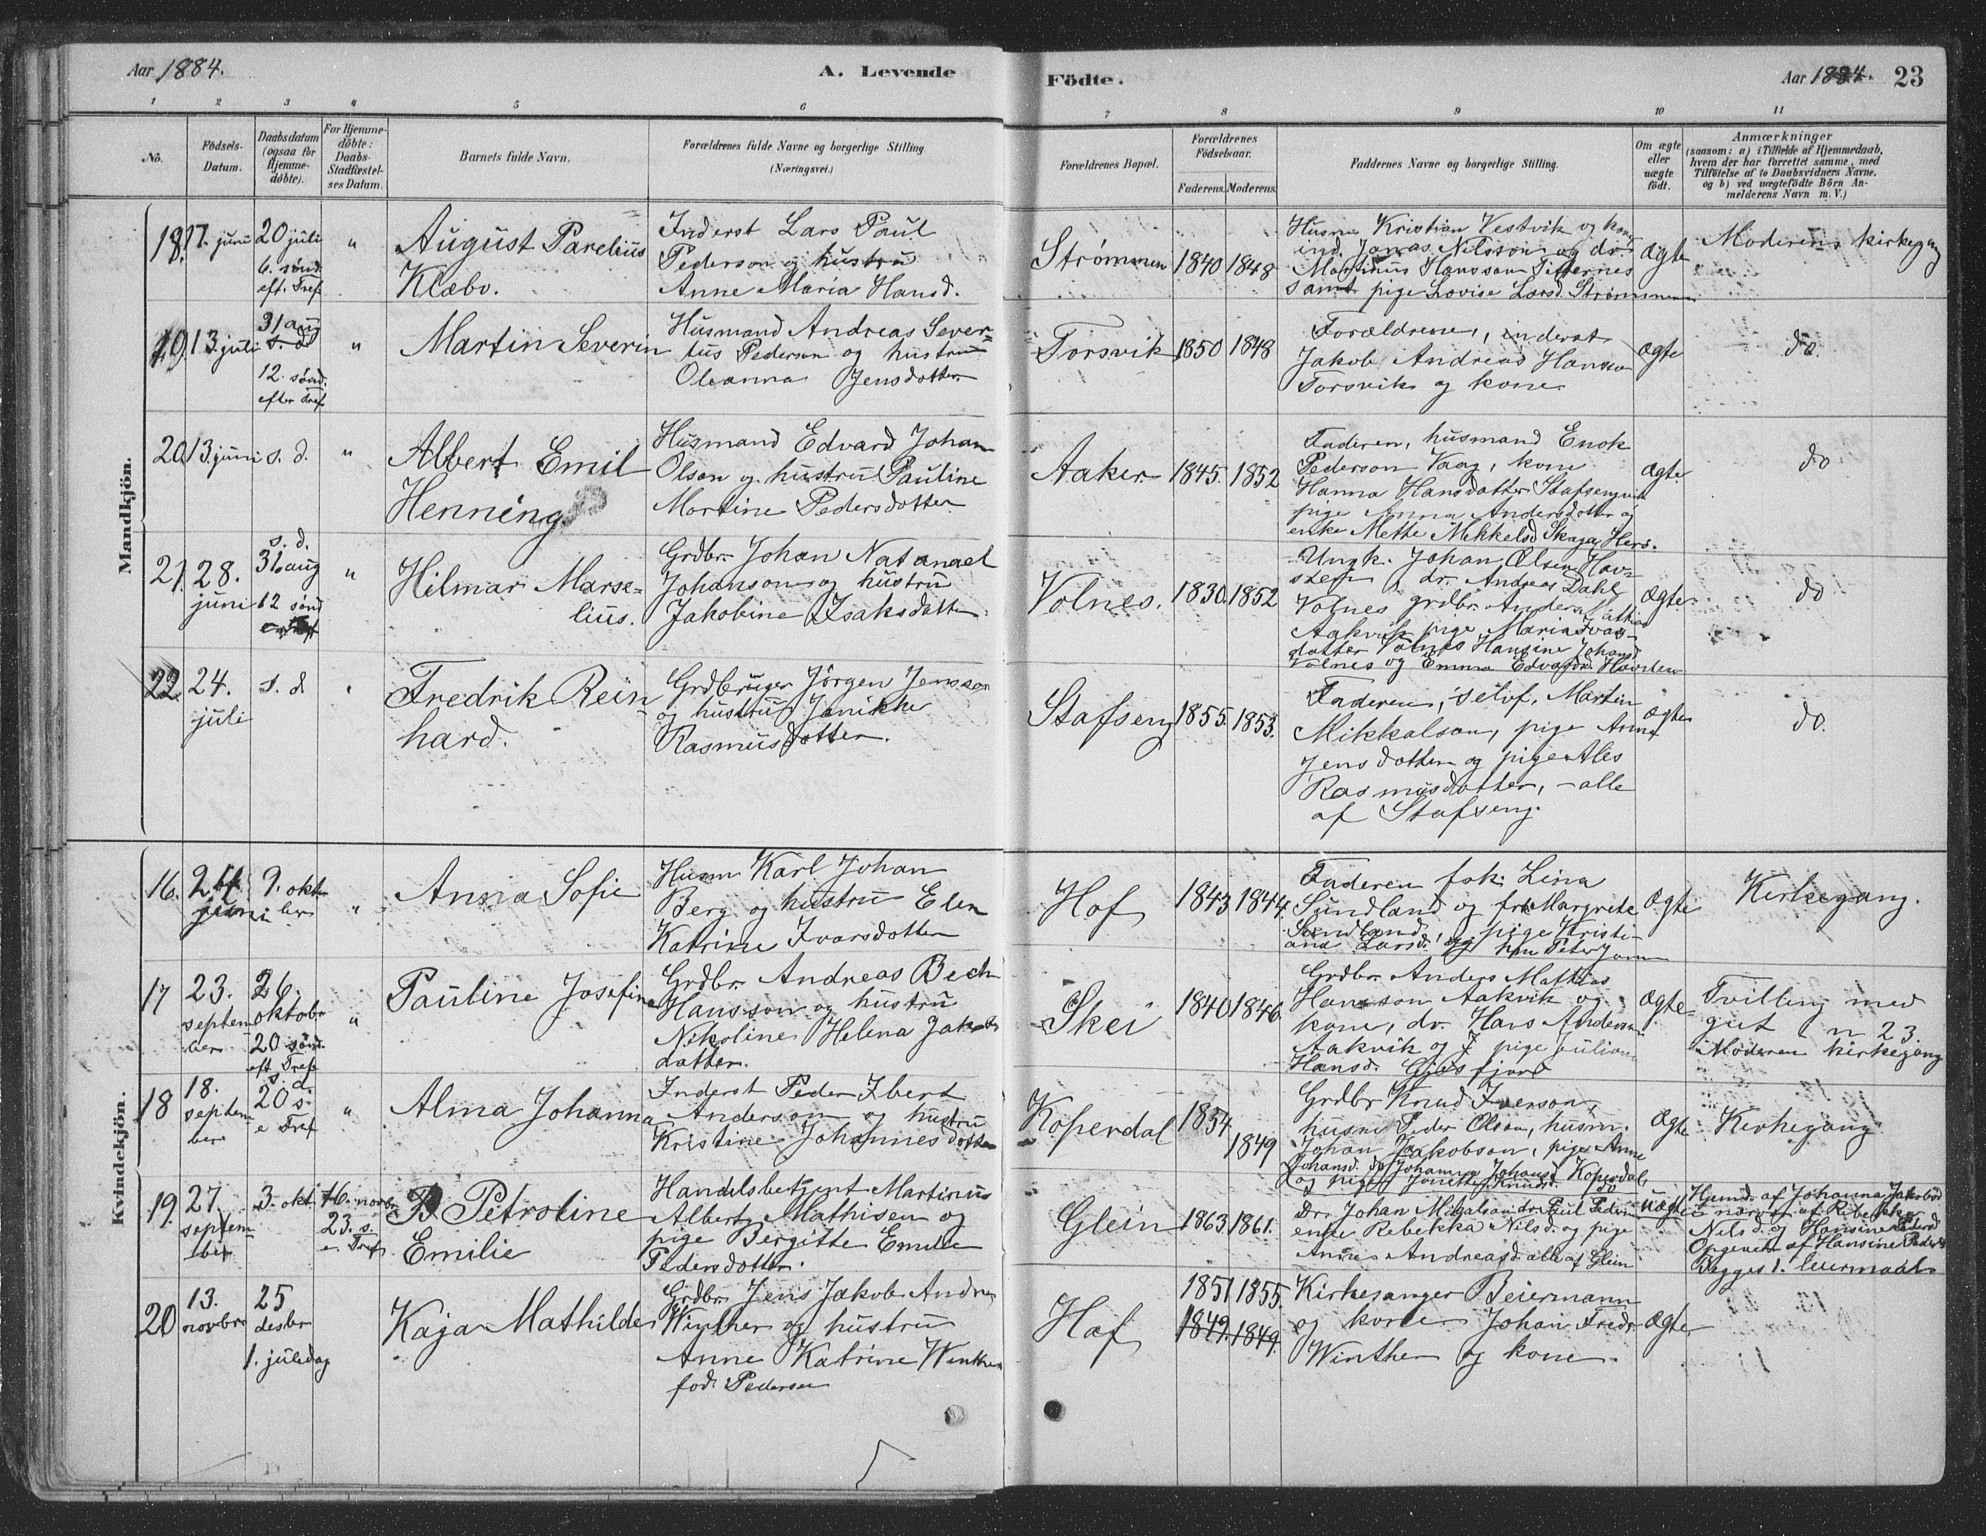 Aar 1884.
A. Levende
Födte.
Aar 1884. 23
1 2 3 4 5 6 7 8 9 10 11
No.
Födsels-
Datum.
Daabsdatum
(ogsaa for
Hjemme-
döbte).
For Hjemme-
döbte:
Daabs-
Stadfæstel-
ses Datum.
Barnets fulde Navn.
Forældrenes fulde Navne og borgerlige Stilling
(Næringsvei.)
Forældrenes Bopæl.
Forældrenes
Födselsaar.
Faderens. Moderens.
Faddernes Navne og borgerlige Stilling.
Om ægte
eller
uægte
födt.
Anmærkninger
(saasom: a) i Tilfælde af Hjemmedaab,
hvem der har forrettet samme, med
Tilföielse af to Daabsvidners Navne,
og b) ved uægtefödte Börn An-
melderens Navn m. V.)
Mandkjön.
18. 17. juni
20 juli
6. sønd.
eft. Tref
"
August Parelius
Klæbo.
Inderst Lars Paul
Pederson og hustru
Anne Maria Hansd.
Strømmen
1840 1848
Husm Kristian Vestvik og kone
ind. Jonas Nilsson og dr.
Martinus Hansson
samt pige Lovise Larsd. Strømmen
ægte
Moderens kirkegang
19. 13. juli
31 aug
s. d.
12. sønd.
efter Tref
"
Martin Severin
Husmand Andreas Sever-
tus Pederson og hustru
Oleanna Jensdatter
Torsvik
1850 1848
Forældrene, inderst
Jakob Andreas Hansson
Torsvik og kone
ægte
do.
20. 13. juni
s. d.
"
Albert Emil
Henning
Husmand Edvard Johan
Olson og hustru Pauline
Martine Pedersdotter
Aaker
1845. 1852
Faderen, husmand Enok
Pederson Vaag, kone
Hanna Hansdatter Stafsengvik
pige Anna Andersdotter og
enke Mette Mikkelsd Skaga, Herø.
ægte
do
21. 28.
juni
s. d.
31. aug
12 sønd
"
Hilmar Marse-
lius.
Grdbr. Johan Natanael
Johanson og hustru
Jakobine Isaksdatter.
Volnes.
1830. 1852
Ungk. Johan Olsen Hav-
sten, dr. Andreas Dahl
Volnes grdbr. Anders Mathias
Aakvik pige Maria Ivars-
dotter Volnes Hansine Johansd
Volnes og Emma Edvardsd. Havsten
ægte
do
22. 24.
juli
s. d
Fredrik Rein
hard.
Grdbruger Jørgen Jensson
og hustru Janikke
Rasmusdotter.
Stafseng
1855. 1853.
Faderen, selvf. Martin
Mikkalson, pige Anna
Jensdotter og pige Ales
Rasmusdotter, - alle
af Stafseng.
ægte
do.
Kvindekjön.
16. 24
juni
9. okto
ber
"
Anna Sofie
Husm Karl Johan
Berg og hustru Elen
Katrine Ivarsdotter
Hof
1843 1844.
Faderen frk. Lina
Sundland og frk Margrete
Sundland, pige Kristi-
ane Larsd. og
ægte
Kirkegang.
17 23.
septem
ber
26.
oktobr
20 sønd.
eft Tref
"
Pauline Josefine
Grdbr. Andreas Bech
Hansson og hustru
Nikoline Helena Jakobs
datter.
Skei
1840 1846
Grdbr Anders Mathias
Hansson Aakvik og
kone, dr. Hans Anderson
Aakvik og pige Juliane
Hansd.
ægte-
Tvilling med
gut n 23.
Moderen kirkegang
18 18.
septem
ber
s. d.
20 s.
e Tref
"
Alma Johanna
Inderst Peder Ibert
Anderson og hustru
Kristine Johannesdotter
Koperdal
1854
1849
Grdbr Knud Iverson,
husm Peder Olson, husm.
Johan Jakobson, pige Anne
Johansd. do Johanna Johansd Koperdal
og pige Knudsd.
ægte
Kirkegang
19. 27.
septem-
ber
3. okt.
16. novbr
23. s.
e. Tref
Petroline
Emilie
Handelsbetjent Martinus
Albert Mathisen og
pige Bergitte Emilie
Pedersdotter.
Glein
1863. 1861.
Dr. Johan Mikalson dr. Paul Peders
enke Rebekka Nilsd. og pige
Anne Andreasd. alle af Glein
uægte
Hjemd. af Johanna Jakobsd
i nærv. af Ribekka
Nilsd. og Hansine Pedersd
Opgivet af Hansine Pedersd
Begges 1. leiermaal.
20 13.
novbr
25
desbr
1. juledag
Kaja Mathilde
Grdbr Jens Jakob Andreas
Winther og hustru
Anne Katrine Winther
fød. Pedersen
Hof
1851 1855.
1842. 1849.
Kirkesanger Beiermann
og kone Johan Fredr
Winther og kone.
ægte